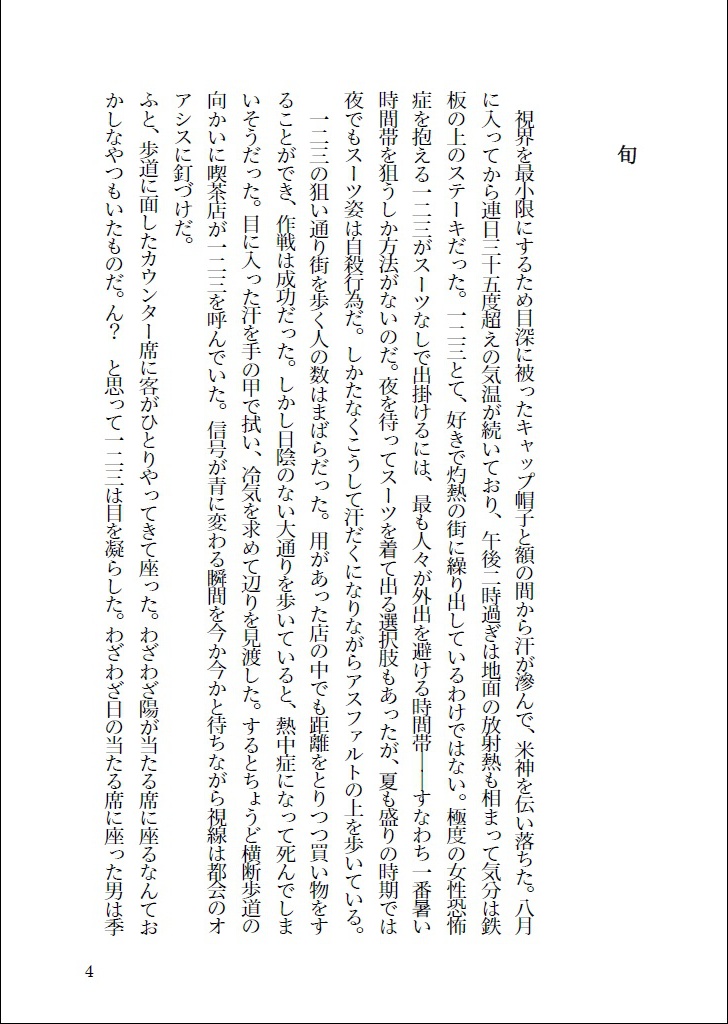 旬
　視界を最小限にするため目深に被ったキャップ帽子と額の間から汗が滲んで、米神を伝い落ちた。八月
に入ってから連日三十五度超えの気温が続いており、午後二時過ぎは地面の放射熱も相まって気分は鉄
板の上のステーキだった。一二三とて、好きで灼熱の街に繰り出しているわけではない。極度の女性恐怖
症を抱える一二三がスーツなしで出掛けるには、最も人々が外出を避ける時間帯――すなわち一番暑い
時間帯を狙うしか方法がないのだ。夜を待ってスーツを着て出る選択肢もあったが、夏も盛りの時期では
夜でもスーツ姿は自殺行為だ。しかたなくこうして汗だくになりながらアスファルトの上を歩いている。
　一二三の狙い通り街を歩く人の数はまばらだった。用があった店の中でも距離をとりつつ買い物をす
ることができ、作戦は成功だった。しかし日陰のない大通りを歩いていると、熱中症になって死んでしま
いそうだった。目に入った汗を手の甲で拭い、冷気を求めて辺りを見渡した。するとちょうど横断歩道の
向かいに喫茶店が一二三を呼んでいた。信号が青に変わる瞬間を今か今かと待ちながら視線は都会のオ
アシスに釘づけだ。
ふと、歩道に面したカウンター席に客がひとりやってきて座った。わざわざ陽が当たる席に座るなんてお
かしなやつもいたものだ。ん？　と思って一二三は目を凝らした。わざわざ日の当たる席に座った男は季
4